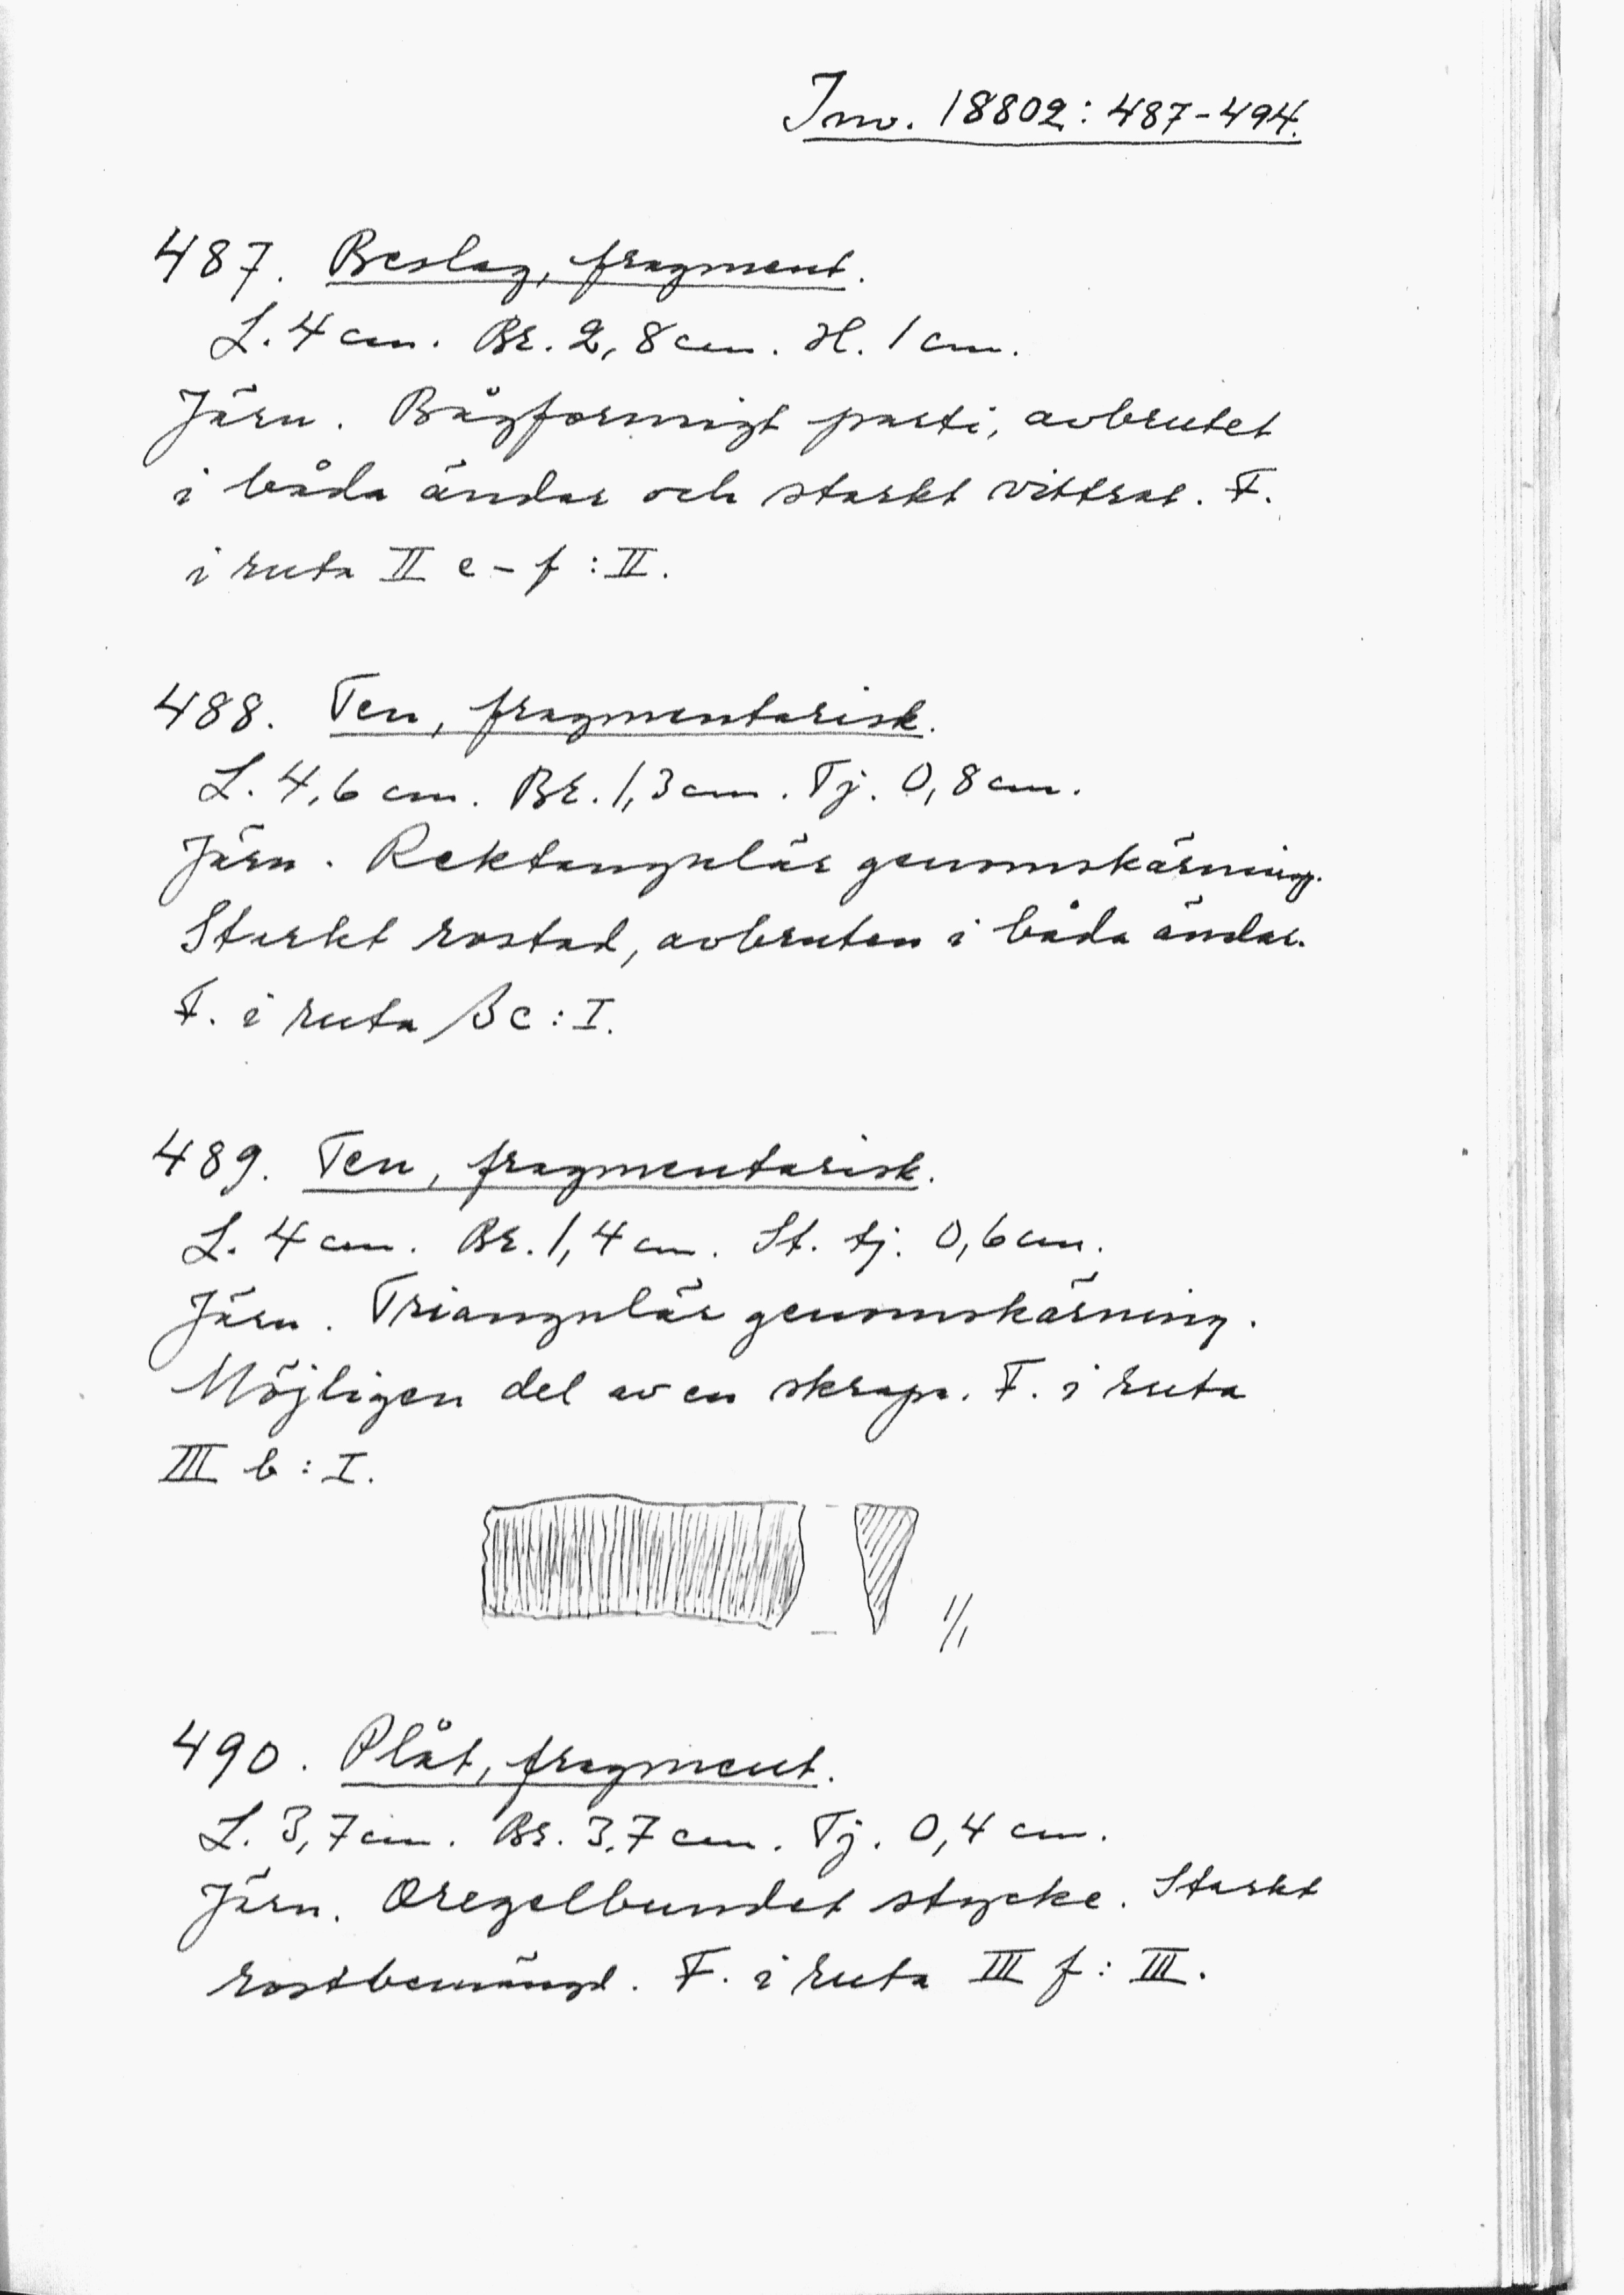 Inv. 18802: 487-494.
487. Beslag, fragment.
L. 4 cm. Br. 2,8 cm. H. 1 cm.
Järn. Bågformigt parti, avbrutet
i båda ändar och starkt vittrat. F.
i ruta II e-f : II.
488. Ten, fragmentarisk.
L. 4,6 cm. Br. 1,3 cm. Tj. 0,8 cm.
Järn. Rektangulär genomskärning.
Starkt rostad, avbruten i båda ändar.
F. i ruta β c : I.
489. Ten, fragmentarisk.
L. 4 cm. Br. 1,4 cm. St. tj. 0,6 cm.
Järn. Triangulär genomskärning.
Möjligen del av en skrapa. F. i ruta
III b : I.
1/1
490. Plåt, fragment.
L. 3,7 cm. Br. 3,7 cm. Tj. 0,4 cm.
Järn. Oregelbundet stycke. Starkt
rostbemängd. F. i ruta III f : III.